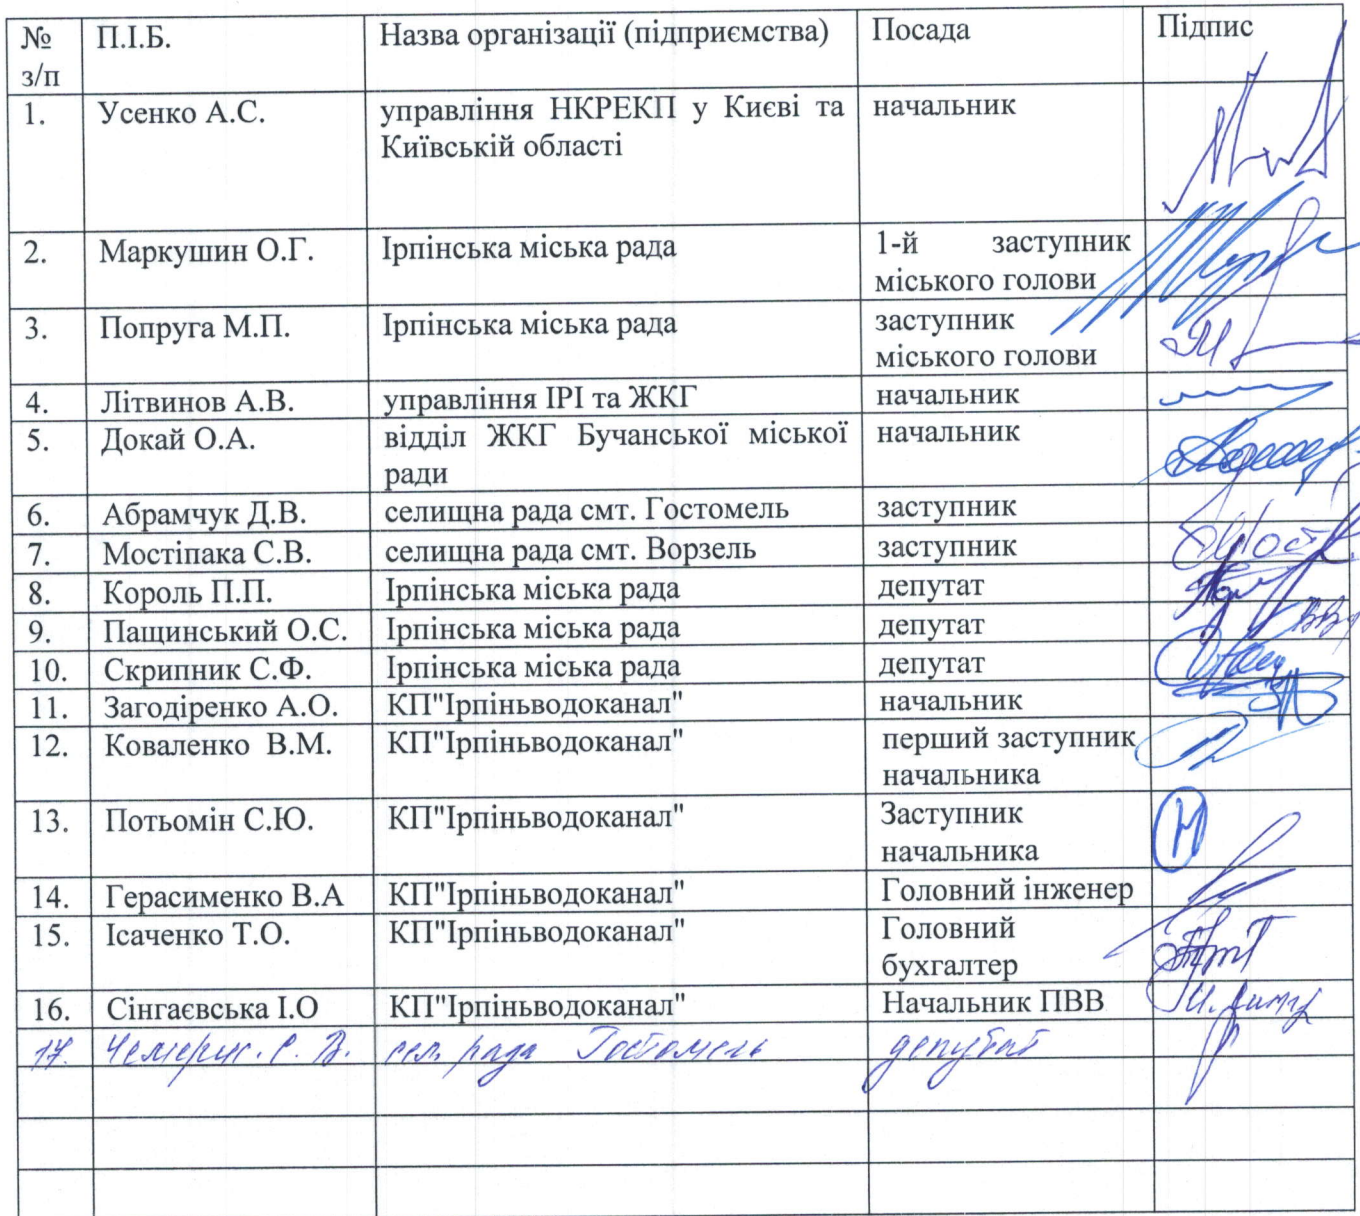 № з/п П.І.Б. Назва організації (підприємства) Посада Підпис
1. Усенко А.С. управління НКРЕКП у Києві та Київській області начальник
2. Маркушин О.Г. Ірпінська міська рада 1-й заступник міського голови
3. Попруга М.П. Ірпінська міська рада заступник міського голови
4. Літвинов А.В. управління ІРІ та ЖКГ начальник
5. Докай О.А. відділ ЖКГ Бучанської міської ради начальник
6. Абрамчук Д.В. селищна рада смт. Гостомель заступник
7. Мостіпака С.В. селищна рада смт. Ворзель заступник
8. Король П.П. Ірпінська міська рада депутат
9. Пащинський О.С. Ірпінська міська рада депутат
10. Скрипник С.Ф. Ірпінська міська рада депутат
11. Загодіренко А.О. КП"Ірпіньводоканал" начальник
12. Коваленко В.М. КП"Ірпіньводоканал" перший заступник начальника
13. Потьомін С.Ю. КП"Ірпіньводоканал" Заступник начальника
14. Герасименко В.А КП"Ірпіньводоканал" Головний інженер
15. Ісаченко Т.О. КП"Ірпіньводоканал" Головний бухгалтер
16. Сінгаєвська І.О КП"Ірпіньводоканал" Начальник ПВВ
17. Чемерис. С. В. сел. рада Гостомель депутат